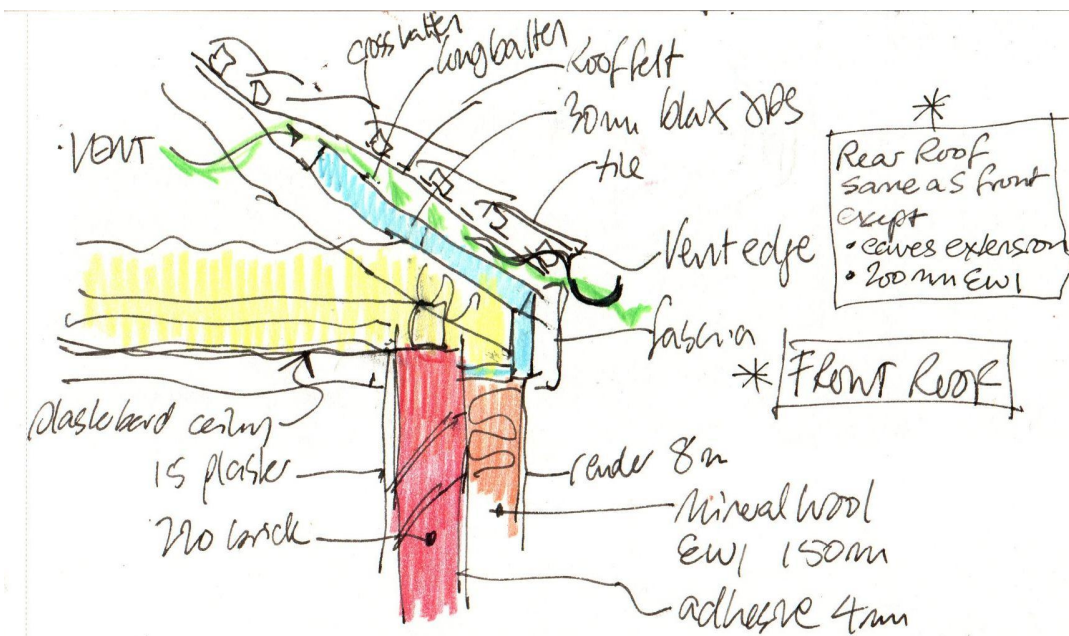 cross batten
long batten
Roof felt
30mm blax XPS
tile
VENT
*
Rear Roof
same as front
exept
• eaves extension
• 200mm EWI
Vent edge
fascia
* FRONT ROOF
plasterbord ceiling
15 plaster
220 brick
render 8m
Mineral Wool
EWI 150mm
adhesive 4mm